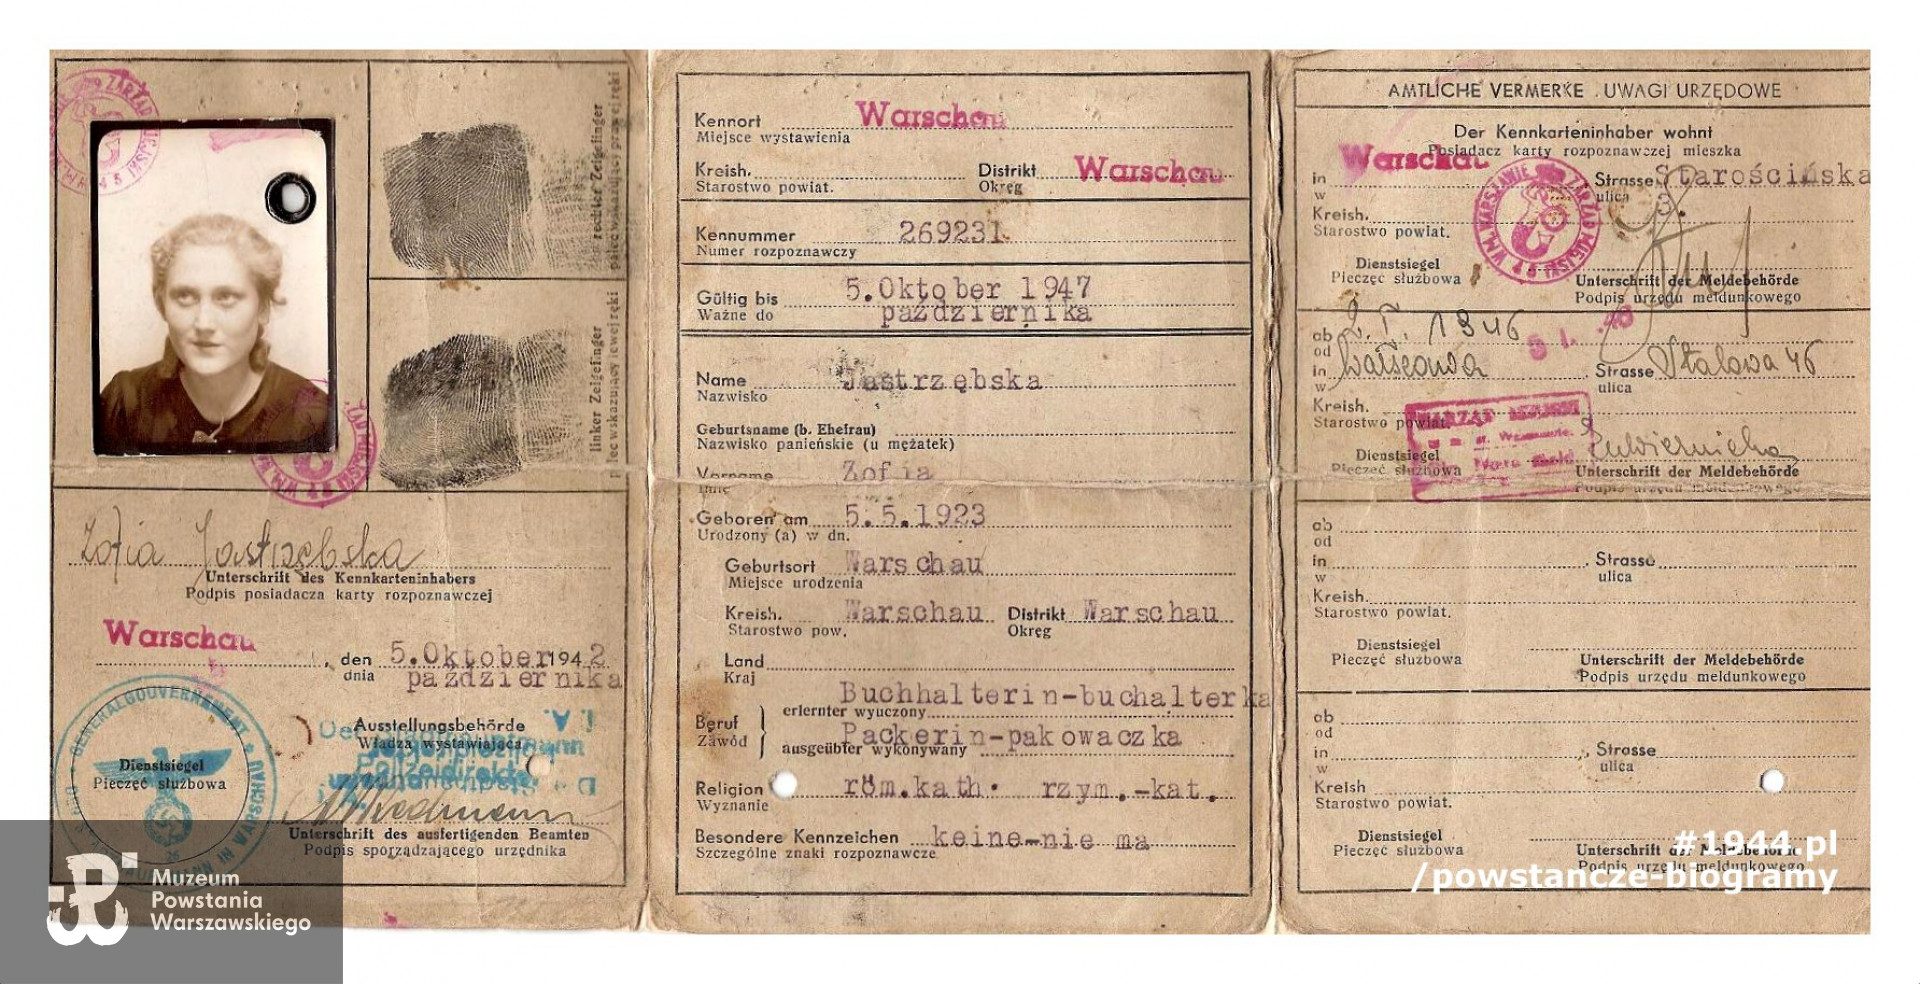 rechter Zeigefinger
linker Zeigefinger
Zofia Jastrzębska
Unterschrift des Kennkarteninhabers
Podpis posiadacza karty rozpoznawczej
Warschau
, den 5.Oktober 1942
dnia października
GENERALGOUVERNEMENT
Ausstellungsbehörde
Władza wystawiająca
Dienstsiegel
Pieczęć służbowa
Unterschrift des ausfertigenden Beamten
Podpis sporządzającego urzędnika
Muzeum
Powstania
Warszawskiego
Kennort Warschau
Miejsce wystawienia
Kreish. Distrikt Warschau
Starostwo powiat. Okręg
Kennummer 269231
Numer rozpoznawczy
Gültig bis 5.Oktober 1947
Ważne do października
Name Jastrzębska
Nazwisko
Geburtsname (b. Ehefrau)
Nazwisko panieńskie (u mężatek)
Vorname Zofia
Imię
Geboren am 5.5.1923
Urodzony (a) w dn.
Geburtsort Warschau
Miejsce urodzenia
Kreish. Warschau Distrikt Warschau
Starostwo pow. Okręg
Land
Kraj
Buchhalterin-buchalterka
Beruf erlernter wyuczony
Zawód Packerin-pakowaczka
ausgeübter wykonywany
Religion röm.kath. rzym.-kat.
Wyznanie
Besondere Kennzeichen keine-nie ma
Szczególne znaki rozpoznawcze
AMTLICHE VERMERKE . UWAGI URZĘDOWE
Der Kennkarteninhaber wohnt
Posiadacz karty rozpoznawczej mieszka
Warschau
in Strasse Starościńska
w ulica
Kreish.
Starostwo powiat.
Dienstsiegel
Pieczęć służbowa
Unterschrift der Meldebehörde
Podpis urzędu meldunkowego
ab 2. I. 1946
od
in Warszawa Strasse Stalowa 46
w ulica
Kreish.
Starostwo powiat.
Dienstsiegel
Pieczęć służbowa
Unterschrift der Meldebehörde
Podpis urzędu meldunkowego
ab
od
in Strasse
w ulica
Kreish.
Starostwo powiat.
Dienstsiegel
Pieczęć służbowa
Unterschrift der Meldebehörde
Podpis urzędu meldunkowego
ab
od
in Strasse
w ulica
Kreish
Starostwo powiat.
Dienstsiegel
Pieczęć służbowa
Unterschrift der Meldebehörde
Podpis urzędu meldunkowego
#1944.pl
/powstancze-biogramy